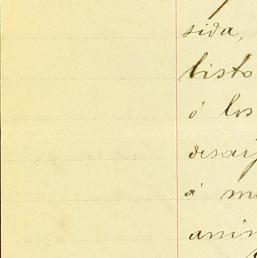 sida,
listo
ó los
desai
á m
anim